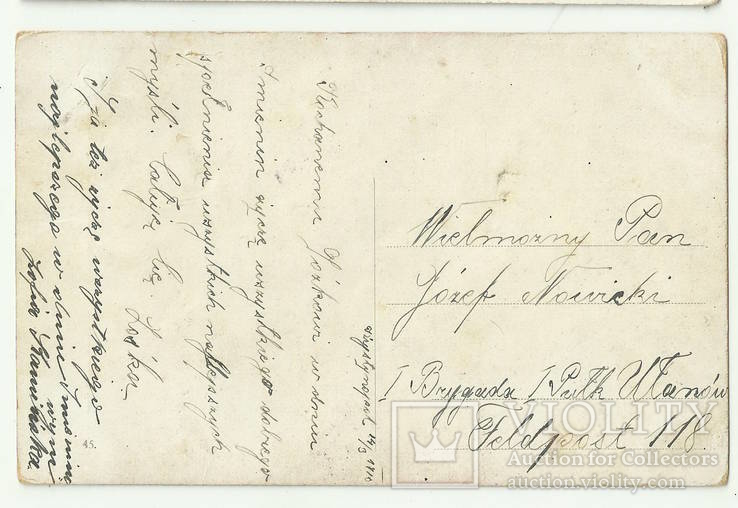 Kochanemu Józkowi w dniu
imienin życzę wszystkiego dobrego
spełnienia wszystkich najlepszych
myśli. Całuję Cię. Zośka
I ja też życzę wszystkiego
najlepszego w dniu imienin
Zofia
14/3 1916
Wielmożny Pan
Józef Nowicki
I Brygada I Pułk Ułanów
Feldpost 118.
45.
VIOLITY
Auction for Collectors
auction.violity.com